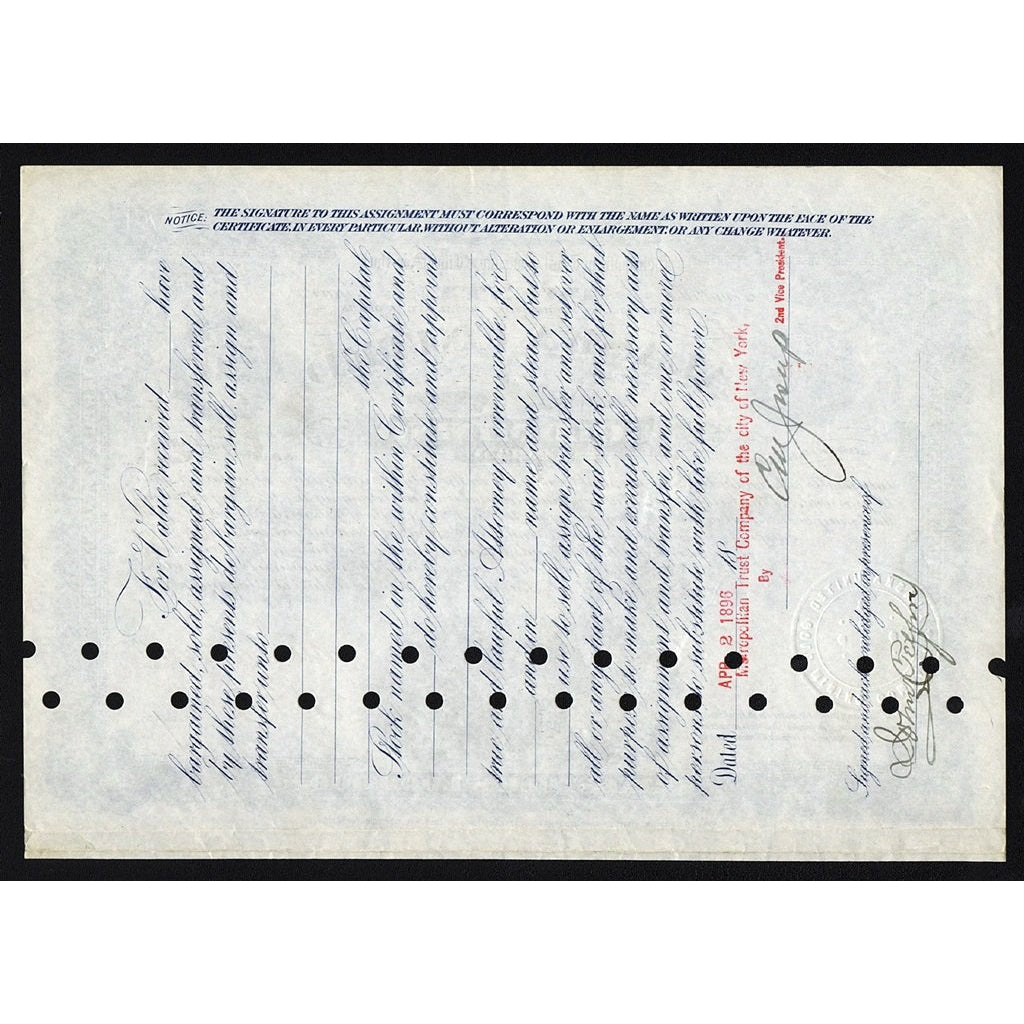 NOTICE: THE SIGNATURE TO THIS ASSIGNMENT MUST CORRESPOND WITH THE NAME AS WRITTEN UPON THE FACE OF THE
CERTIFICATE, IN EVERY PARTICULAR, WITHOUT ALTERATION OR ENLARGEMENT, OR ANY CHANGE WHATEVER.
For Value received have
bargained, sold, assigned and transferred and
by these presents do bargain, sell, assign and
transfer unto
the Capital
Stock named in the within Certificate, and
do hereby constitute and appoint
true and lawful Attorney, irrevocable, for
and in name and stead, but to
use to sell, assign, transfer and set over
all or any part of the said stock, and for that
purpose to make and execute all necessary acts
of assignment and transfer, and one or more
persons to substitute with like full power.
Dated APR 2 1896
Metropolitan Trust Company of the city of New York,
By
2nd Vice President.
Signed and acknowledged in presence of
John